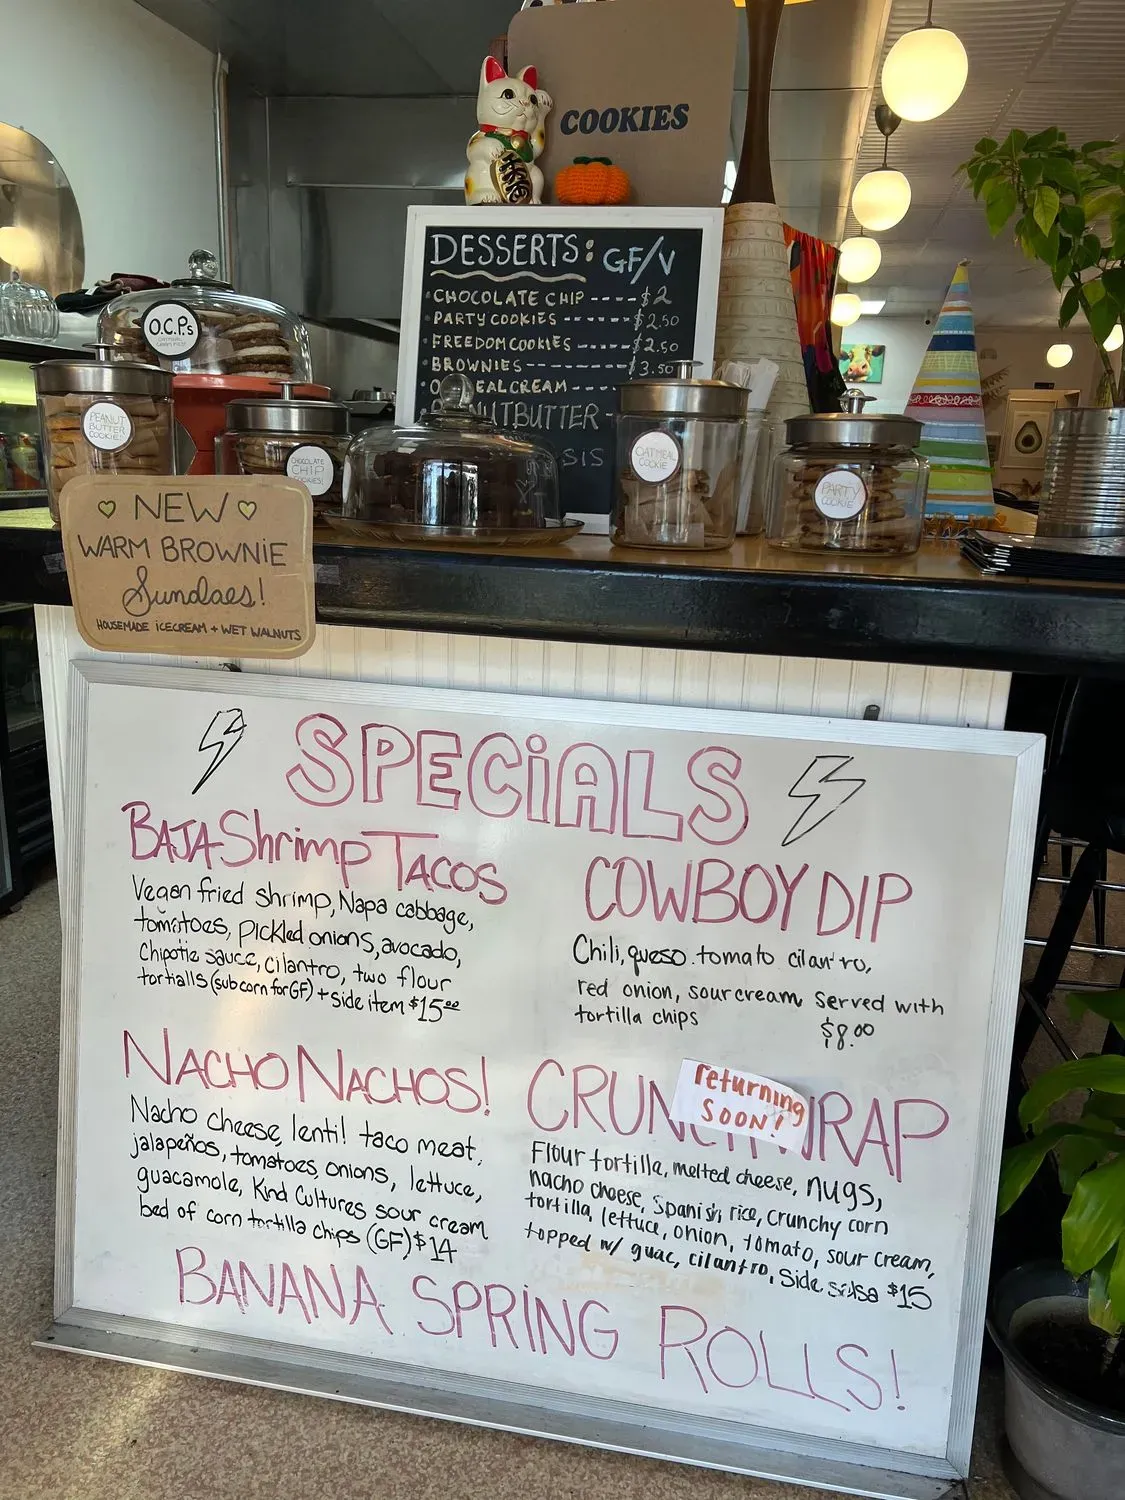 COOKIES
DESSERTS: GF/V
CHOCOLATE CHIP ---- $2
PARTY COOKIES ------- $2.50
FREEDOM COOKIES ----- $2.50
BROWNIES ------- $3.50
CREAM ----
BUTTER -
SIS
O.C.P.s
PEANUT
BUTTER
COOKIE!
CHOCOLATE
CHIP
COOKIES!
OATMEAL
COOKIE
PARTY
COOKIE
NEW
WARM BROWNIE
Sundaes!
HOUSEMADE iCECREAM + WET WALNUTS
SPECiALS
BAJA Shrimp TACOS
Vegan fried shrimp, Napa cabbage,
tomatoes, pickled onions, avocado,
Chipotle sauce, cilantro, two flour
tortialls (sub corn for GF) + side item $15.00
COWBOY DIP
Chili, queso tomato cilantro,
red onion, sour cream served with
tortilla chips
$8.00
NACHO NACHOS!
Nacho cheese, lentil taco meat,
jalapeños, tomatoes, onions, lettuce,
guacamole, Kind Cultures sour cream
bed of corn tortilla chips (GF) $14
returning
SOON!
CRUNCHWRAP
Flour tortilla, melted cheese, nugs,
nacho cheese, Spanish rice, crunchy corn
tortilla, lettuce, onion, tomato, sour cream,
topped w/ guac, cilantro, Side salsa $15
BANANA SPRING ROLLS!